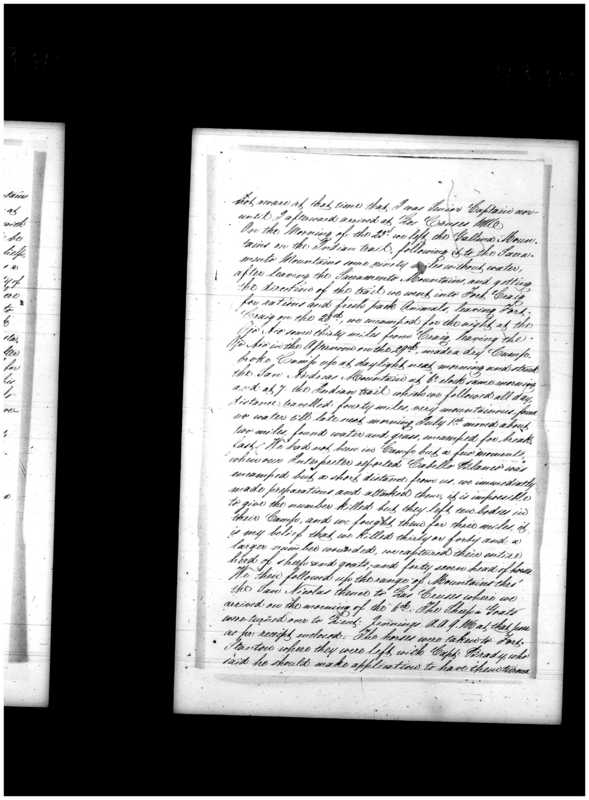 not aware at that time that I was Senior Captain nor
until I afterward arrived at Las Cruses
On the Morning of the 23d we left the Gallina Moun-
tains on the Indian trail, following it to the Sacra-
mento Mountains some ninety miles without water,
after leaving the Sacramento Mountains, and getting
the direction of the trail we went into Fort Craig
for rations and fresh pack Animals, leaving Fort
Craig on the 28th, we encamped for the night at the
some thirty miles from Craig, leaving the
in the Afternoon on the 29th, made a dry Camp.
broke Camp up at daylight next morning and struck
the San Andreas Mountain at 6 o'clock same morning
and at 7 the Indian trail which we followed all day,
distance travelled fourty miles, very mountainous, found
no water till late next morning July 1st moved about
two miles, found water and grass, encamped for break
fast, We had not been in Camp but a few moments,
when our Interpreter reported Cabello Blanco was
encamped but a short distance from us, we immediately
made preparations and attacked them, it is impossible
to give the number killed but they left two bodies in
their Camp, and we fought them for three miles, it
is my belief that we killed thirty or forty and a
larger number wounded, we captured their entire
herd of sheep and goats, and forty seven head of horses
We then followed up the range of Mountains thro'
the San Nicolas to Las Cruses where we
arrived on the morning of the 6th. The Sheep & Goats
were turned over to Lieut. Jennings A.A.Q.M. at that post
as per receipt inclosed. The horses were taken to Fort
Stanton where they were left with Capt. Brady, who
said he should make application to have them